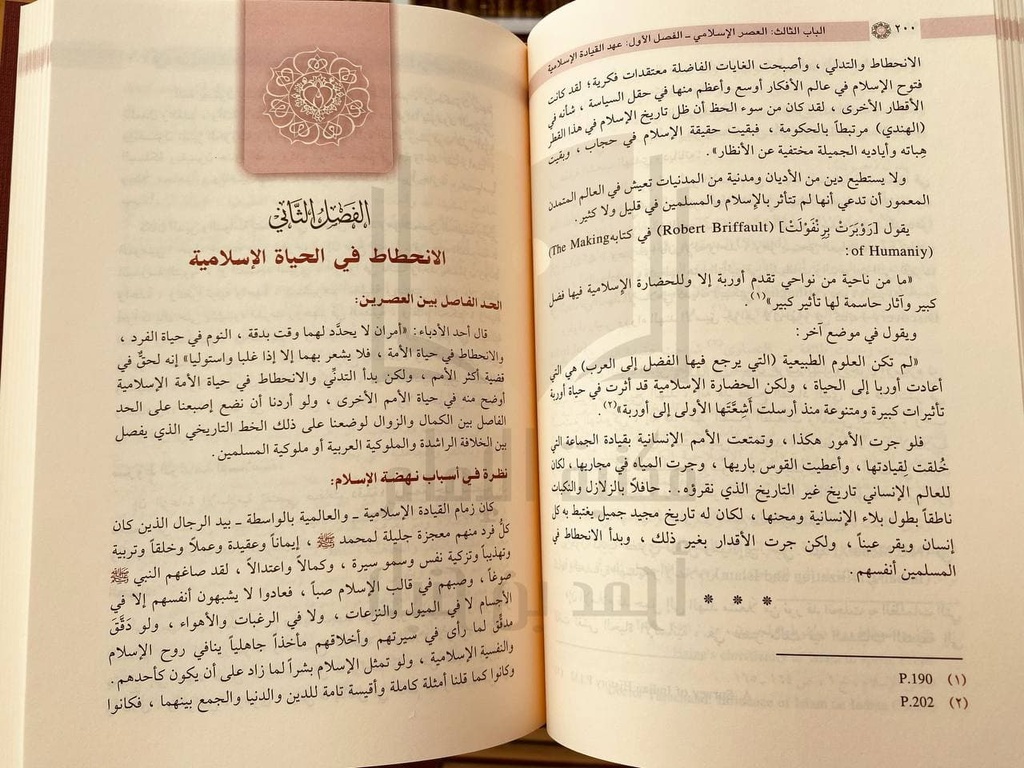 ٢٠٠ الباب الثالث: العصر الإسلامي - الفصل الأول: عهد القيادة الإسلامية
الانحطاط والتدلي ، وأصبحت الغايات الفاضلة معتقدات فكرية؛ لقد كانت
فتوح الإسلام في عالم الأفكار أوسع وأعظم منها في حقل السياسة ، شأنه في
الأقطار الأخرى ، لقد كان من سوء الحظ أن ظل تاريخ الإسلام في هذا القطر
(الهندي) مرتبطاً بالحكومة ، فبقيت حقيقة الإسلام في حجاب ، وبقيت
هِباته وأياديه الجميلة مختفية عن الأنظار».
ولا يستطيع دين من الأديان ومدنية من المدنيات تعيش في العالم المتمدن
المعمور أن تدعي أنها لم تتأثر بالإسلام والمسلمين في قليل ولا كثير.
يقول [رَوْبَرَتْ بِرِنْفَوْلَتْ] (Robert Briffault) في كتابه (The Making
of Humaniy):
«ما من ناحية من نواحي تقدم أوربة إلا وللحضارة الإسلامية فيها فضل
كبير وآثار حاسمة لها تأثير كبير»(١).
ويقول في موضع آخر:
«لم تكن العلوم الطبيعية (التي يرجع فيها الفضل إلى العرب) هي التي
أعادت أوربا إلى الحياة ، ولكن الحضارة الإسلامية قد أثرت في حياة أوربة
تأثيرات كبيرة ومتنوعة منذ أرسلت أَشِعَّتَها الأولى إلى أوربة»(٢).
فلو جرت الأمور هكذا ، وتمتعت الأمم الإنسانية بقيادة الجماعة التي
خُلقت لِقيادتها ، وأعطيت القوس باريها ، وجرت المياه في مجاريها ، لكان
للعالم الإنساني تاريخ غير التاريخ الذي نقرؤه.. حافلاً بالزلازل والنكبات
ناطقاً بطول بلاء الإنسانية ومحنها ، لكان له تاريخ مجيد جميل يغتبط به كل
إنسان ويقر عيناً ، ولكن جرت الأقدار بغير ذلك ، وبدأ الانحطاط في
المسلمين أنفسهم.
* * *
(١) P.190
(٢) P.202
الفَصْلُ الثَّاني
الانحطاط في الحياة الإسلامية
الحد الفاصل بين العصرين:
قال أحد الأدباء: «أمران لا يحدَّد لهما وقت بدقة ، النوم في حياة الفرد ،
والانحطاط في حياة الأمة ، فلا يشعر بهما إلا إذا غلبا واستوليا» إنه لحقٌّ في
قضية أكثر الأمم ، ولكن بدأ التدنِّي والانحطاط في حياة الأمة الإسلامية
أوضح منه في حياة الأمم الأخرى ، ولو أردنا أن نضع إصبعنا على الحد
الفاصل بين الكمال والزوال لوضعنا على ذلك الخط التاريخي الذي يفصل
بين الخلافة الراشدة والملوكية العربية أو ملوكية المسلمين.
نظرة في أسباب نهضة الإسلام:
كان زمام القيادة الإسلامية - والعالمية بالواسطة - بيد الرجال الذين كان
كلُّ فرد منهم معجزة جليلة لمحمد ﷺ ، إيماناً وعقيدة وعملاً وخلقاً وتربية
وتهذيباً وتزكية نفس وسمو سيرة ، وكمالاً واعتدالاً ، لقد صاغهم النبي ﷺ
صوغاً ، وصبهم في قالب الإسلام صباً ، فعادوا لا يشبهون أنفسهم إلا في
الأجسام لا في الميول والنزعات ، ولا في الرغبات والأهواء ، ولو دَقَّقَ
مدقِّق لما رأى في سيرتهم وأخلاقهم مأخذاً جاهلياً ينافي روح الإسلام
والنفسية الإسلامية ، ولو تمثل الإسلام بشراً لما زاد على أن يكون كأحدهم.
وكانوا كما قلنا أمثلة كاملة وأقيسة تامة للدين والدنيا والجمع بينهما ، فكانوا